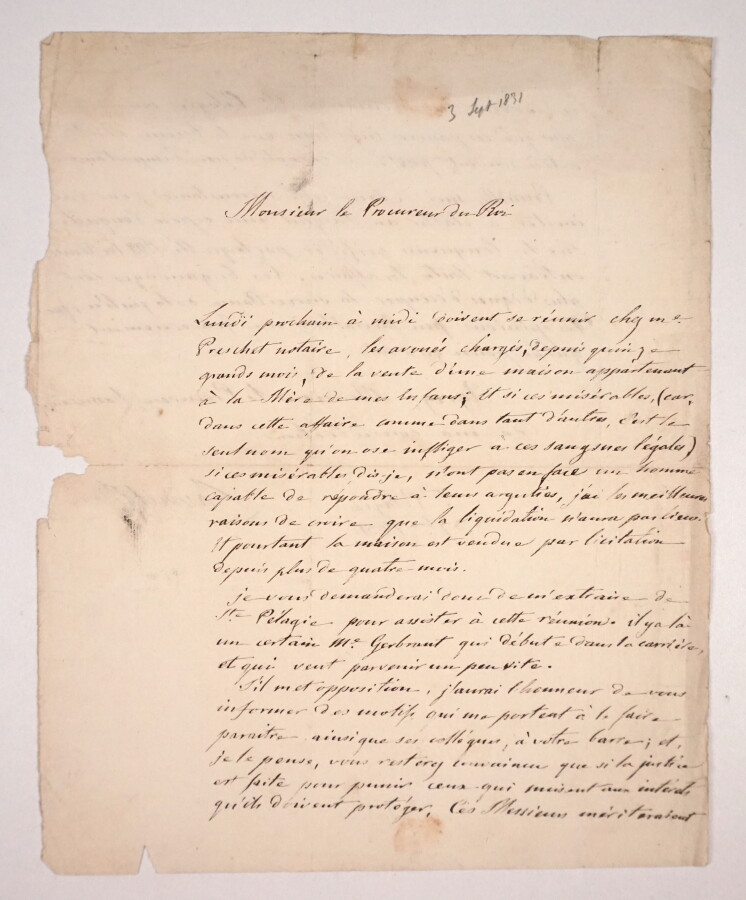 3 Sept 1831
Monsieur le Procureur du Roi
Lundi prochain à midi doivent se réunir chez me.
Preschet notaire, les avoués chargés, depuis quinze
grands mois, de la vente d'une maison appartenant
à la Mère de mes Enfans; Et si ces misérables, (car,
dans cette affaire comme dans tant d'autres, c'est le
seul nom qu'on ose infliger à ces sangsues légales)
si ces misérables dis-je, n'ont pas en face un homme
capable de répondre à leurs arguties, j'ai les meilleures
raisons de croire que la liquidation n'aura pas lieu.
Et pourtant la maison est vendue par licitation
depuis plus de quatre mois.
je vous demanderai donc de m'extraire de
Ste Pélagie pour assister à cette réunion. il y a là
un certain Me. Gerbraut qui débute dans la carrière,
et qui veut parvenir un peu vite.
S'il met opposition, j'aurai l'honneur de vous
informer des motifs qui me portent à le faire
paraitre ainsi que ses collègues, à votre barre; et,
je le pense, vous resterez convaincu que si la justice
est faite pour punir ceux qui nuisent aux intérêts
qu'ils doivent protéger, Ces Messieurs mériteraient